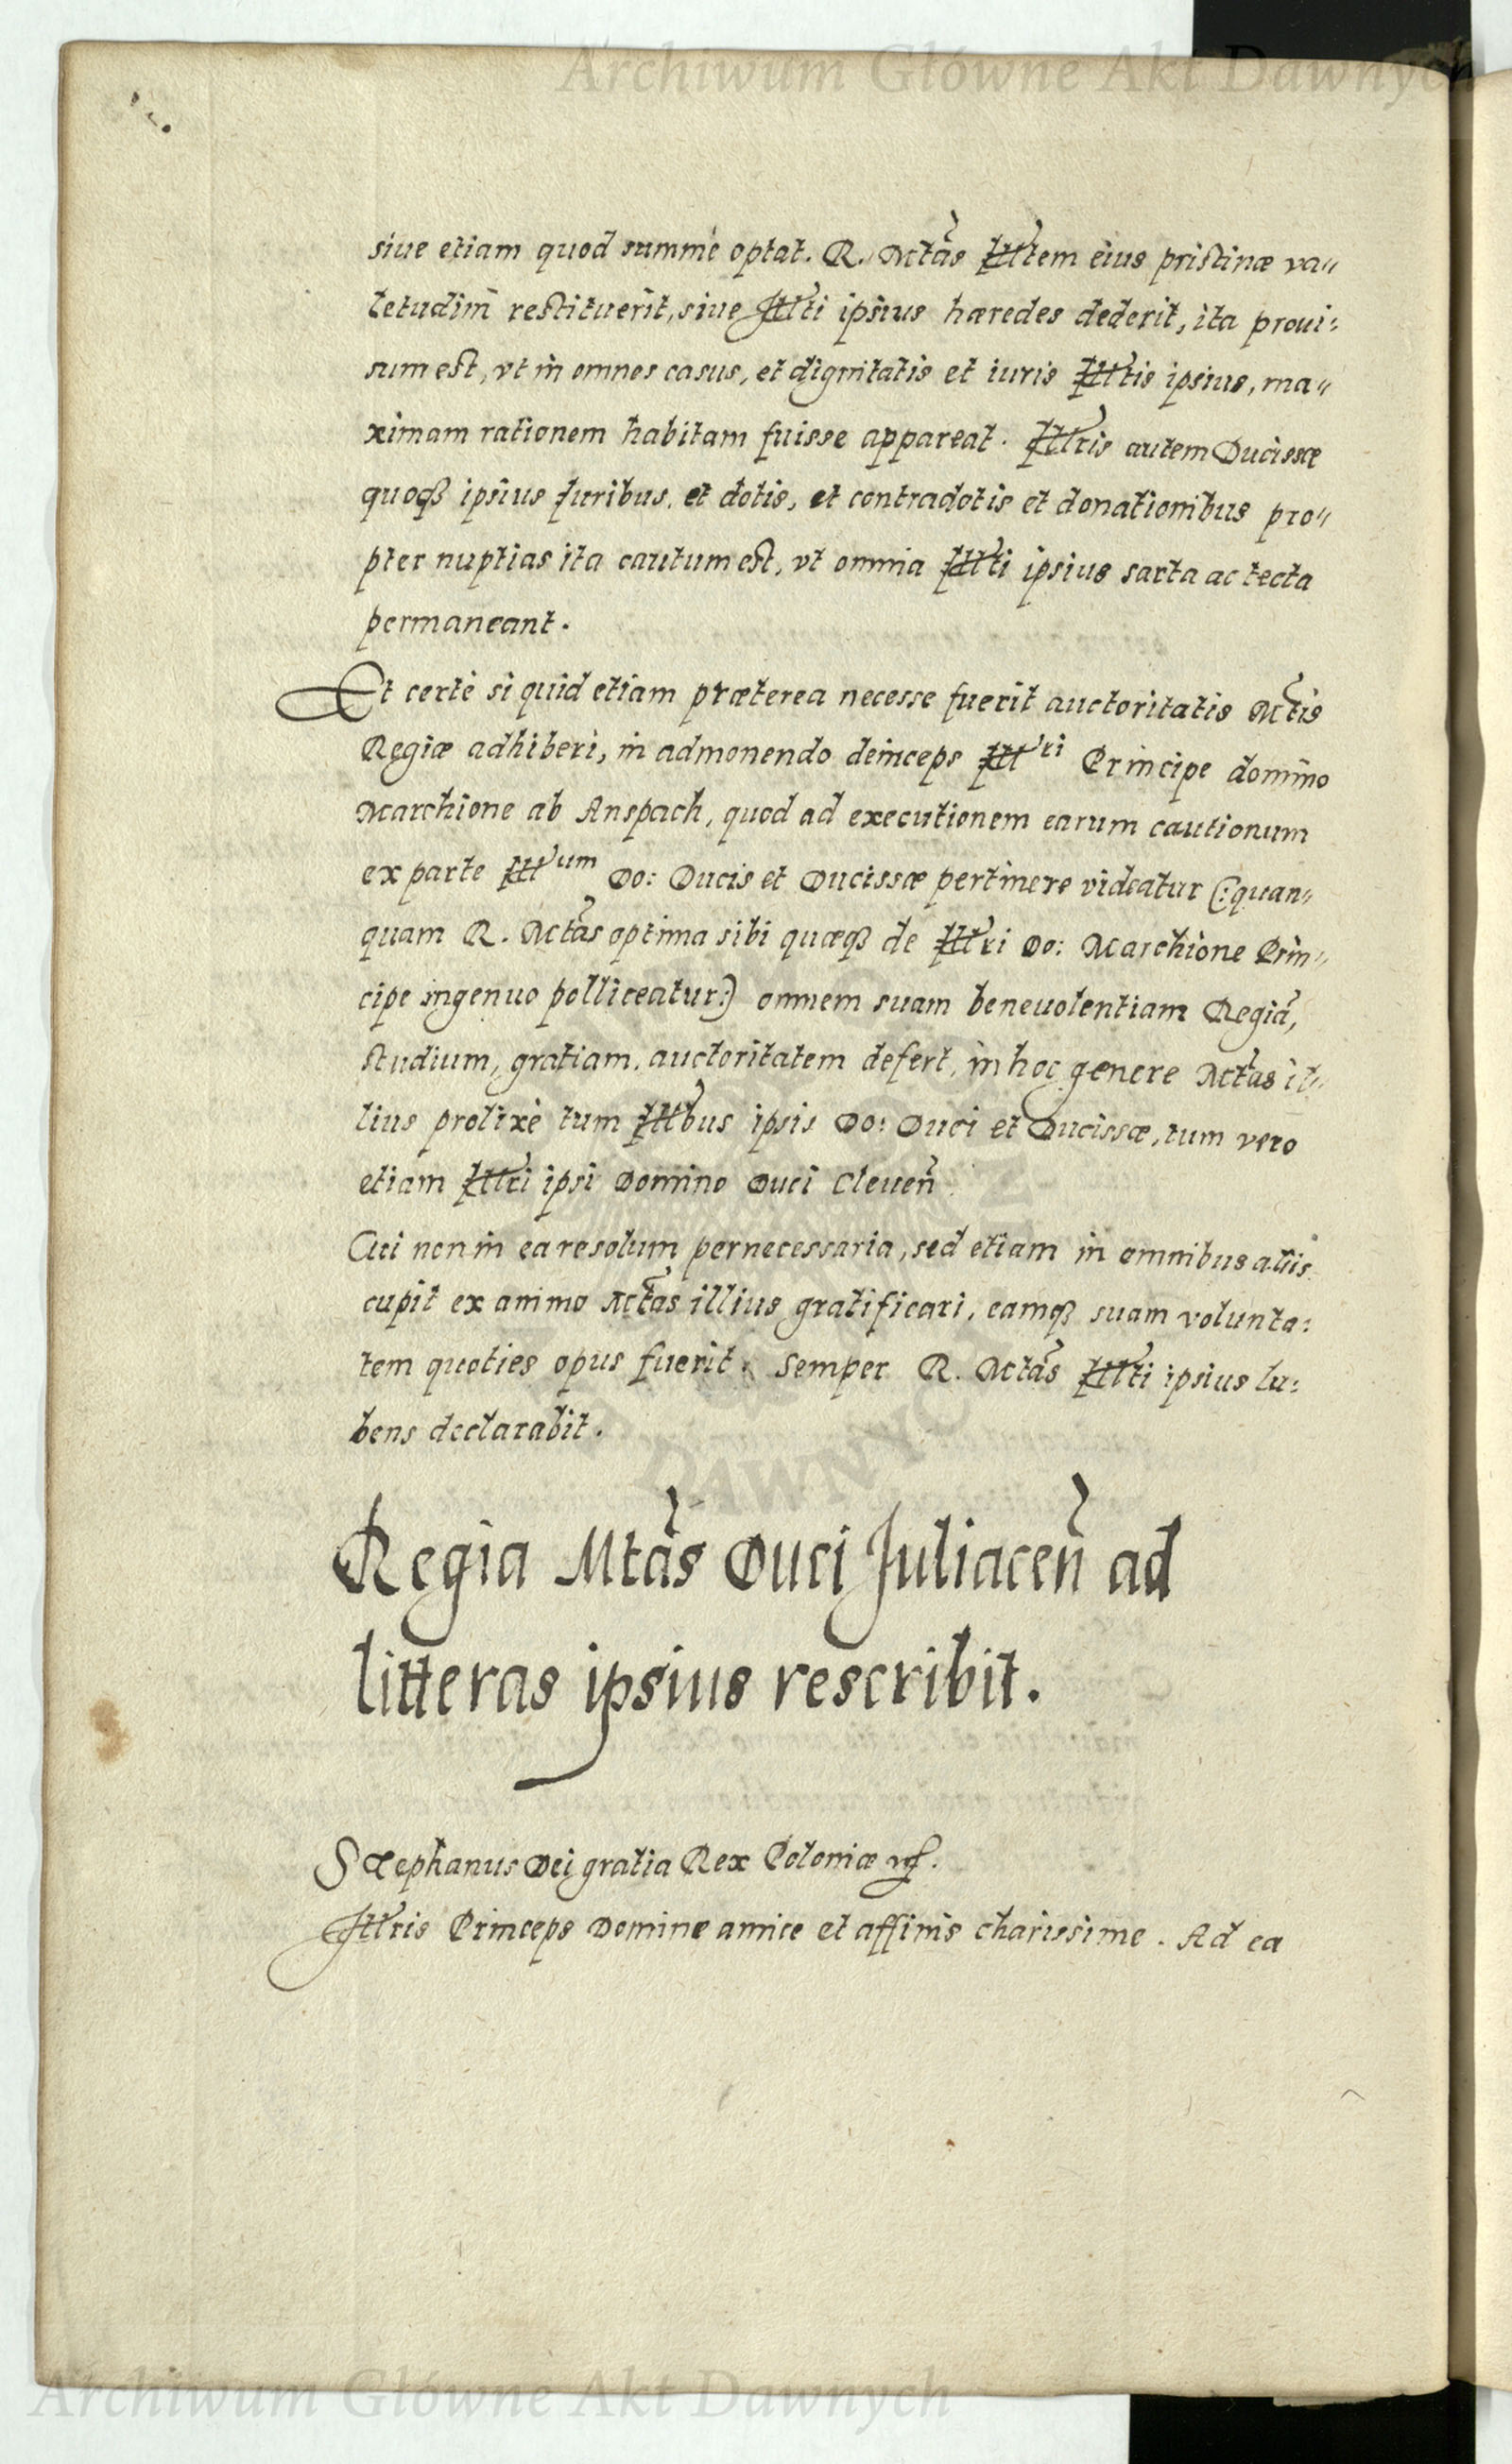 Archiwum Główne Akt Dawnych
siue etiam quod summè optat. R. Mtas Illtem eius pristinæ va„
letudini restituerit, siue Illti ipsius hæredes dederit, ita proui:
sum est, vt in omnes casus, et dignitatis et iuris Illtis ipsius, ma„
ximam rationem habitam fuisse appareat. Illris autem Ducissæ
quoqȝ ipsius iuribus, et dotis, et contradotis et donationibus pro„
pter nuptias ita cautum est, vt omnia Illti ipsius sarta ac tecta
permaneant.
Et certè si quid etiam præterea necesse fuerit auctoritatis Mtis
Regiæ adhiberi, in admonendo deinceps Illri Principe domino
Marchione ab Anspach, quod ad executionem earum cautionum
ex parte Illum Do: Ducis et Ducissæ pertinere videatur (:quan„
quam R. Mtas optima sibi quæqȝ de Illri Do: Marchione Prin„
cipe ingenuo polliceatur:) omnem suam beneuolentiam Regiã,
studium, gratiam, auctoritatem defert, in hoc genere Mtas il„
lius prolixè tum Illbus ipsis Do: Duci et Ducissæ, tum vero
etiam Illri ipsi Domino Duci Cleueñ
Cui non in ea re solum pernecessaria, sed etiam in omnibus aliis
cupit ex animo Mtas illius gratificari, eamqȝ suam volunta:
tem quoties opus fuerit. Semper R. Mtas Illti ipsius lu:
bens declarabit.
Regia Mtas Duci Juliaceñ ad
litteras ipsius rescribit.
Stephanus Dei gratia Rex Poloniæ
Illris Princeps Domine amice et affinis charissime. Ad ea
Archiwum Główne Akt Dawnych